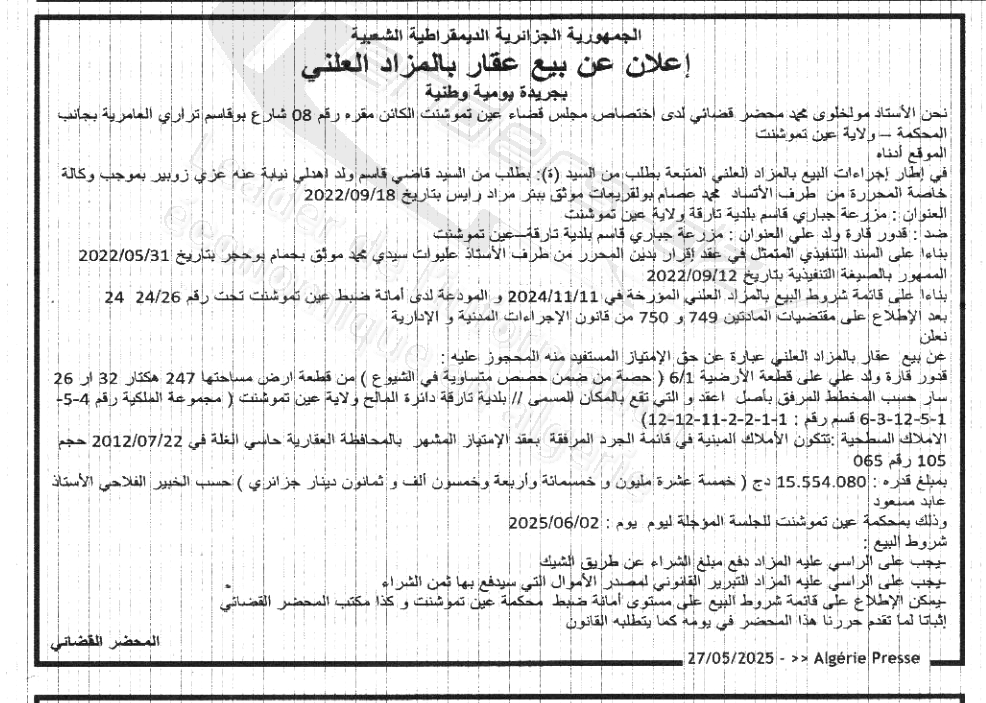 الجمهورية الجزائرية الديمقراطية الشعبية
إعلان عن بيع عقار بالمزاد العلني
بجريدة يومية وطنية
نحن الأستاذ مولخلوي محمد محضر قضائي لدى اختصاص مجلس قضاء عين تموشنت الكائن مقره رقم 08 شارع بوقاسم تراري العامرية بجانب
المحكمة – ولاية عين تموشنت
الموقع أدناه
في إطار إجراءات البيع بالمزاد العلني المتبعة بطلب من السيد (ة): بطلب من السيد قاضي قاسم ولد اهدلي نيابة عنه عزي زوبير بموجب وكالة
خاصة المحررة من طرف الأتساد محمد عصام بولقريعات موثق ببئر مراد رايس بتاريخ 2022/09/18
العنوان : مزرعة جباري قاسم بلدية تارقة ولاية عين تموشنت
ضد : قدور قارة ولد علي العنوان : مزرعة جباري قاسم بلدية تارقة–عين تموشنت
بناءا على السند التنفيذي المتمثل في عقد إقرار بدين المحرر من طرف الأستاذ عليوات سيدي محمد موثق بحمام بوحجر بتاريخ 2022/05/31
الممهور بالصيغة التنفيذية بتاريخ 2022/09/12
بناءا على قائمة شروط البيع بالمزاد العلني المؤرخة في 2024/11/11 و المودعة لدى أمانة ضبط عين تموشنت تحت رقم 24/26 24
بعد الإطلاع على مقتضيات المادتين 749 و 750 من قانون الإجراءات المدنية و الإدارية
نعلن
عن بيع عقار بالمزاد العلني عبارة عن حق الإمتياز المستفيد منه المحجوز عليه :
قدور قارة ولد علي على قطعة الأرضية 6/1 ( حصة من ضمن حصص متساوية في الشيوع ) من قطعة ارض مساحتها 247 هكتار 32 ار 26
سار حسب المخطط المرفق بأصل اعقد و التي تقع بالمكان المسمى // بلدية تارقة دائرة المالح ولاية عين تموشنت ( مجموعة الملكية رقم 4-5-
1-5-12-3-6 قسم رقم : 1-1-2-2-11-12-12)
الاملاك السطحية :تتكون الأملاك المبنية في قائمة الجرد المرفقة بعقد الإمتياز المشهر بالمحافظة العقارية حاسي الغلة في 2012/07/22 حجم
105 رقم 065
بمبلغ قدره : 15.554.080 دج ( خمسة عشرة مليون و خمسمائة وأربعة وخمسون ألف و ثمانون دينار جزائري ) حسب الخبير الفلاحي الأستاذ
عابد مسعود
وذلك بمحكمة عين تموشنت للجلسة المؤجلة ليوم يوم : 2025/06/02
شروط البيع :
-يجب على الراسي عليه المزاد دفع مبلغ الشراء عن طريق الشيك
-يجب على الراسي عليه المزاد التبرير القانوني لمصدر الأموال التي سيدفع بها ثمن الشراء
-يمكن الإطلاع على قائمة شروط البيع على مستوى أمانة ضبط محكمة عين تموشنت و كذا مكتب المحضر القضائي
إثباتا لما تقدم حررنا هذا المحضر في يومه كما يتطلبه القانون
المحضر القضائي
27/05/2025 - >> Algérie Presse